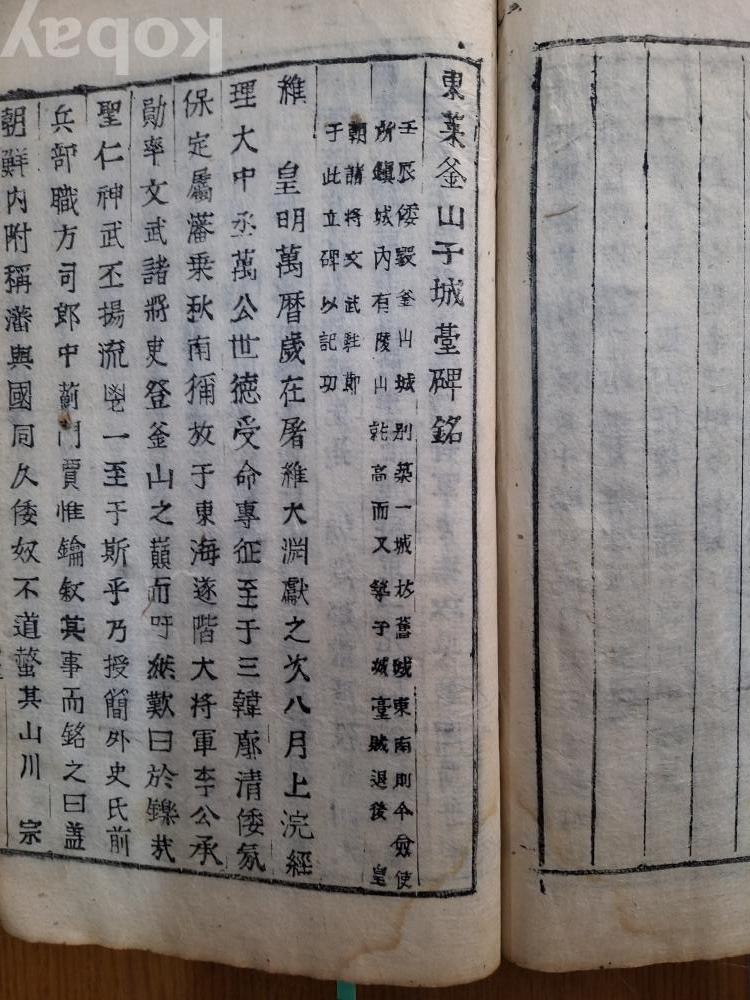 東萊釜山子城臺碑銘
壬辰倭毀釜山城別築一城於舊城東南則今僉使
所鎭城內有陵山就高而又築子城臺賊退後 皇
朝諸將文武駐鄭
于此立碑以記功
維 皇明萬曆歲在屠維大淵獻之次八月上浣經
理大中丞萬公世德受命專征至于三韓廓淸倭氛
保定屬藩乘秋南獮放于東海遂階大將軍李公承
勛率文武諸將吏登釜山之巓而吁嗟歎曰於鑠哉
聖仁神武丕揚流鬯一至于斯乎乃授簡外史氏前
兵部職方司郎中薊門賈惟鑰敘其事而銘之曰蓋
朝鮮內附稱藩與國同久倭奴不道螫其山川 宗
kobay